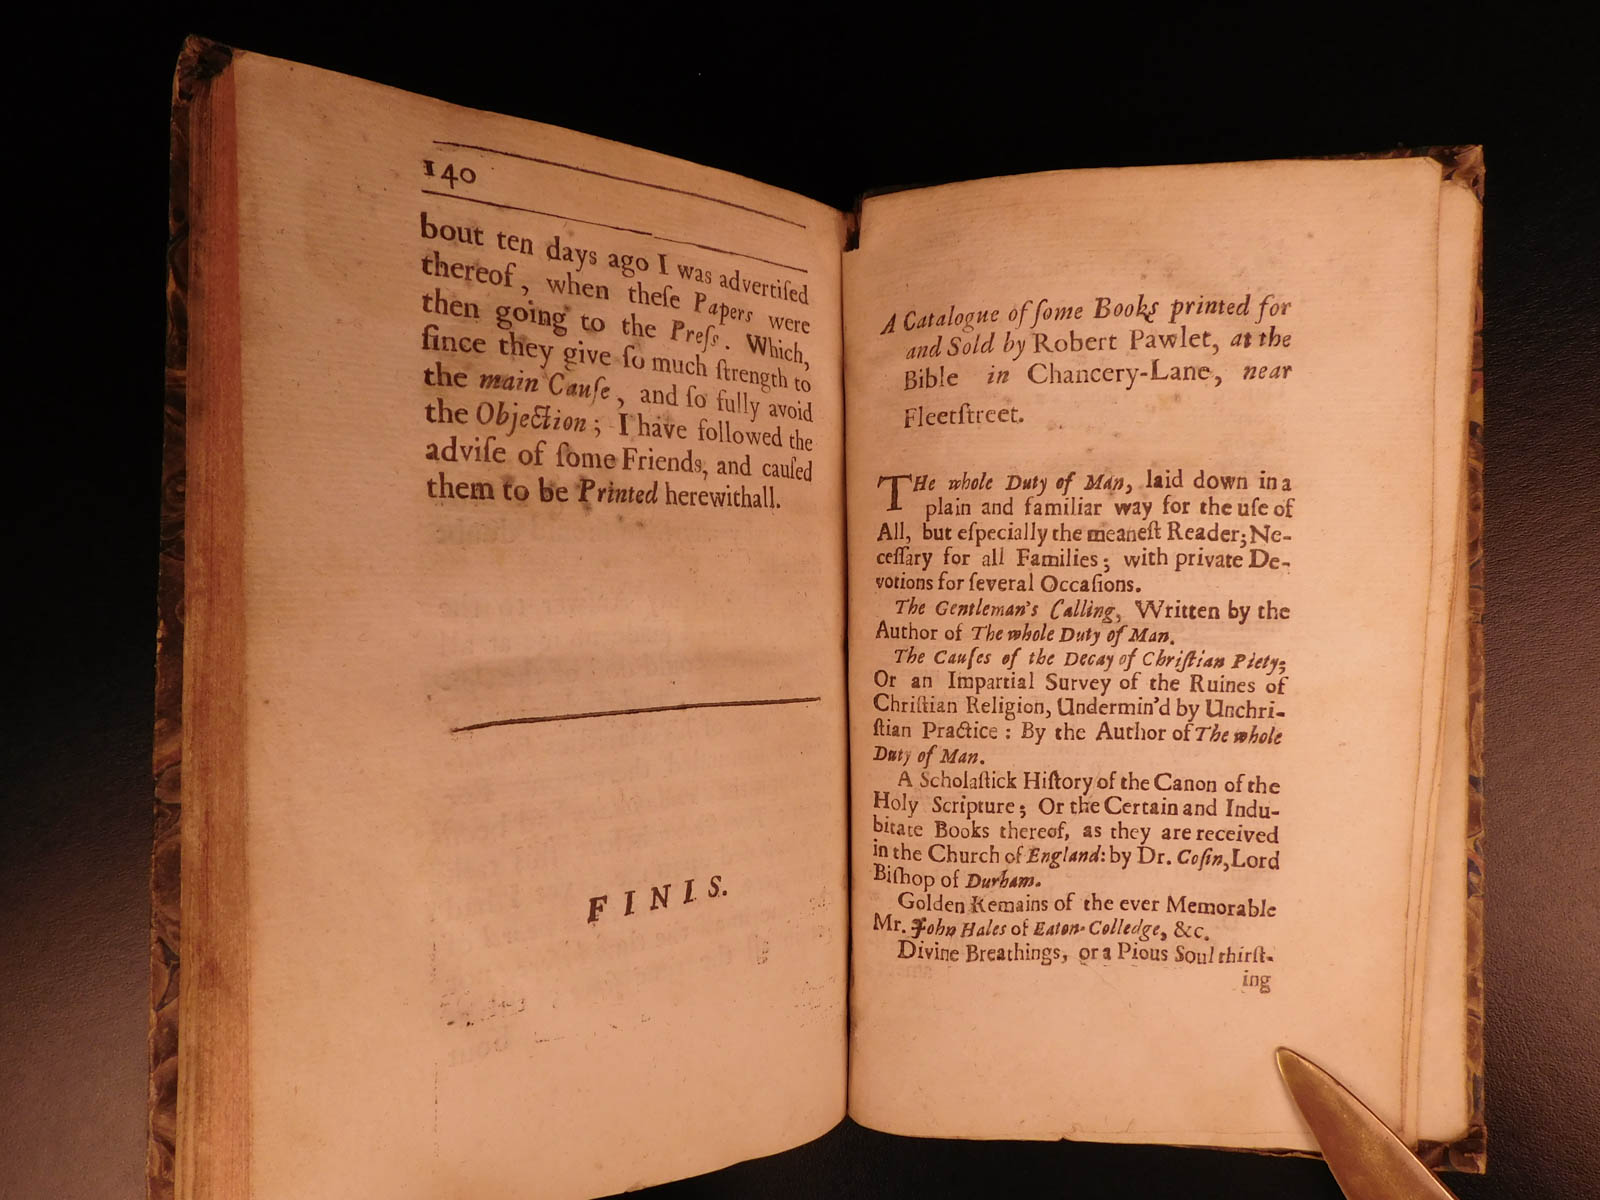 140
bout ten days ago I was advertiſed
thereof, when theſe Papers were
then going to the Preſs. Which,
ſince they give ſo much ſtrength to
the main Cauſe, and ſo fully avoid
the Objection; I have followed the
adviſe of ſome Friends, and cauſed
them to be Printed herewithall.
FINIS.
A Catalogue of ſome Books printed for
and Sold by Robert Pawlet, at the
Bible in Chancery-Lane, near
Fleetſtreet.
THe whole Duty of Man, laid down in a
plain and familiar way for the uſe of
All, but eſpecially the meaneſt Reader; Ne-
ceſſary for all Families; with private De-
votions for ſeveral Occaſions.
The Gentleman's Calling, Written by the
Author of The whole Duty of Man.
The Cauſes of the Decay of Chriſtian Piety;
Or an Impartial Survey of the Ruines of
Chriſtian Religion, Undermin'd by Unchri-
ſtian Practice: By the Author of The whole
Duty of Man.
A Scholaſtick Hiſtory of the Canon of the
Holy Scripture; Or the Certain and Indu-
bitate Books thereof, as they are received
in the Church of England: by Dr. Coſin, Lord
Biſhop of Durham.
Golden Remains of the ever Memorable
Mr. John Hales of Eaton-Colledge, &c.
Divine Breathings, or a Pious Soul thirſt-
ing